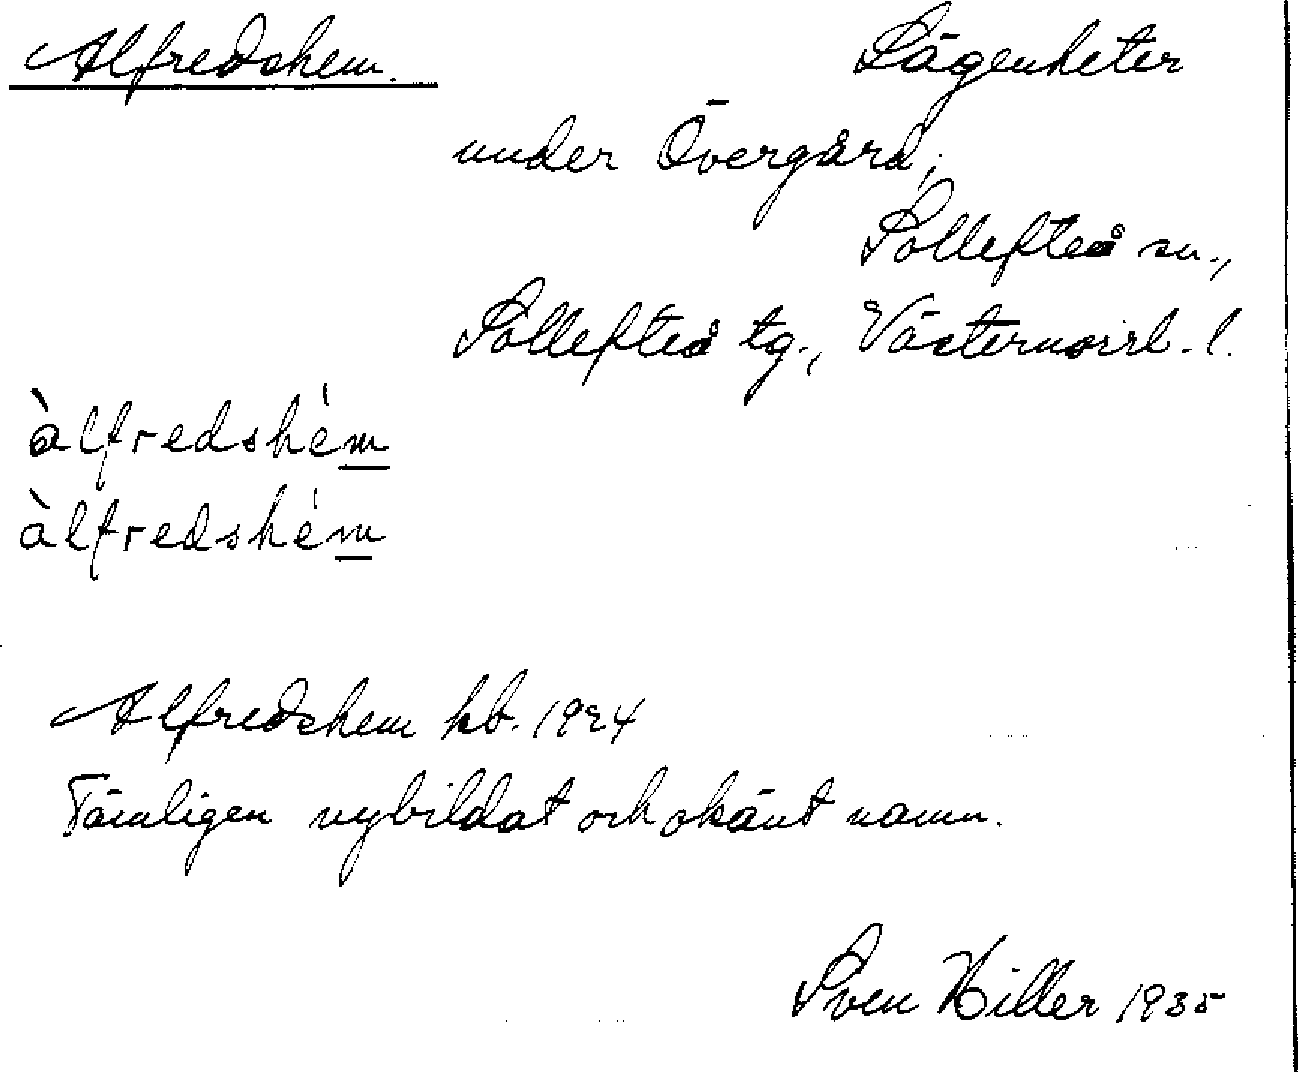 Alfredshem. Lägenheter
under Övergård,
Sollefteå sn.,
Sollefteå tg., Västernorrl. l.
àlfredshém
àlfredshém
Alfredshem kb. 1924
Tämligen nybildat och okänt namn.
Sven Hiller 1935